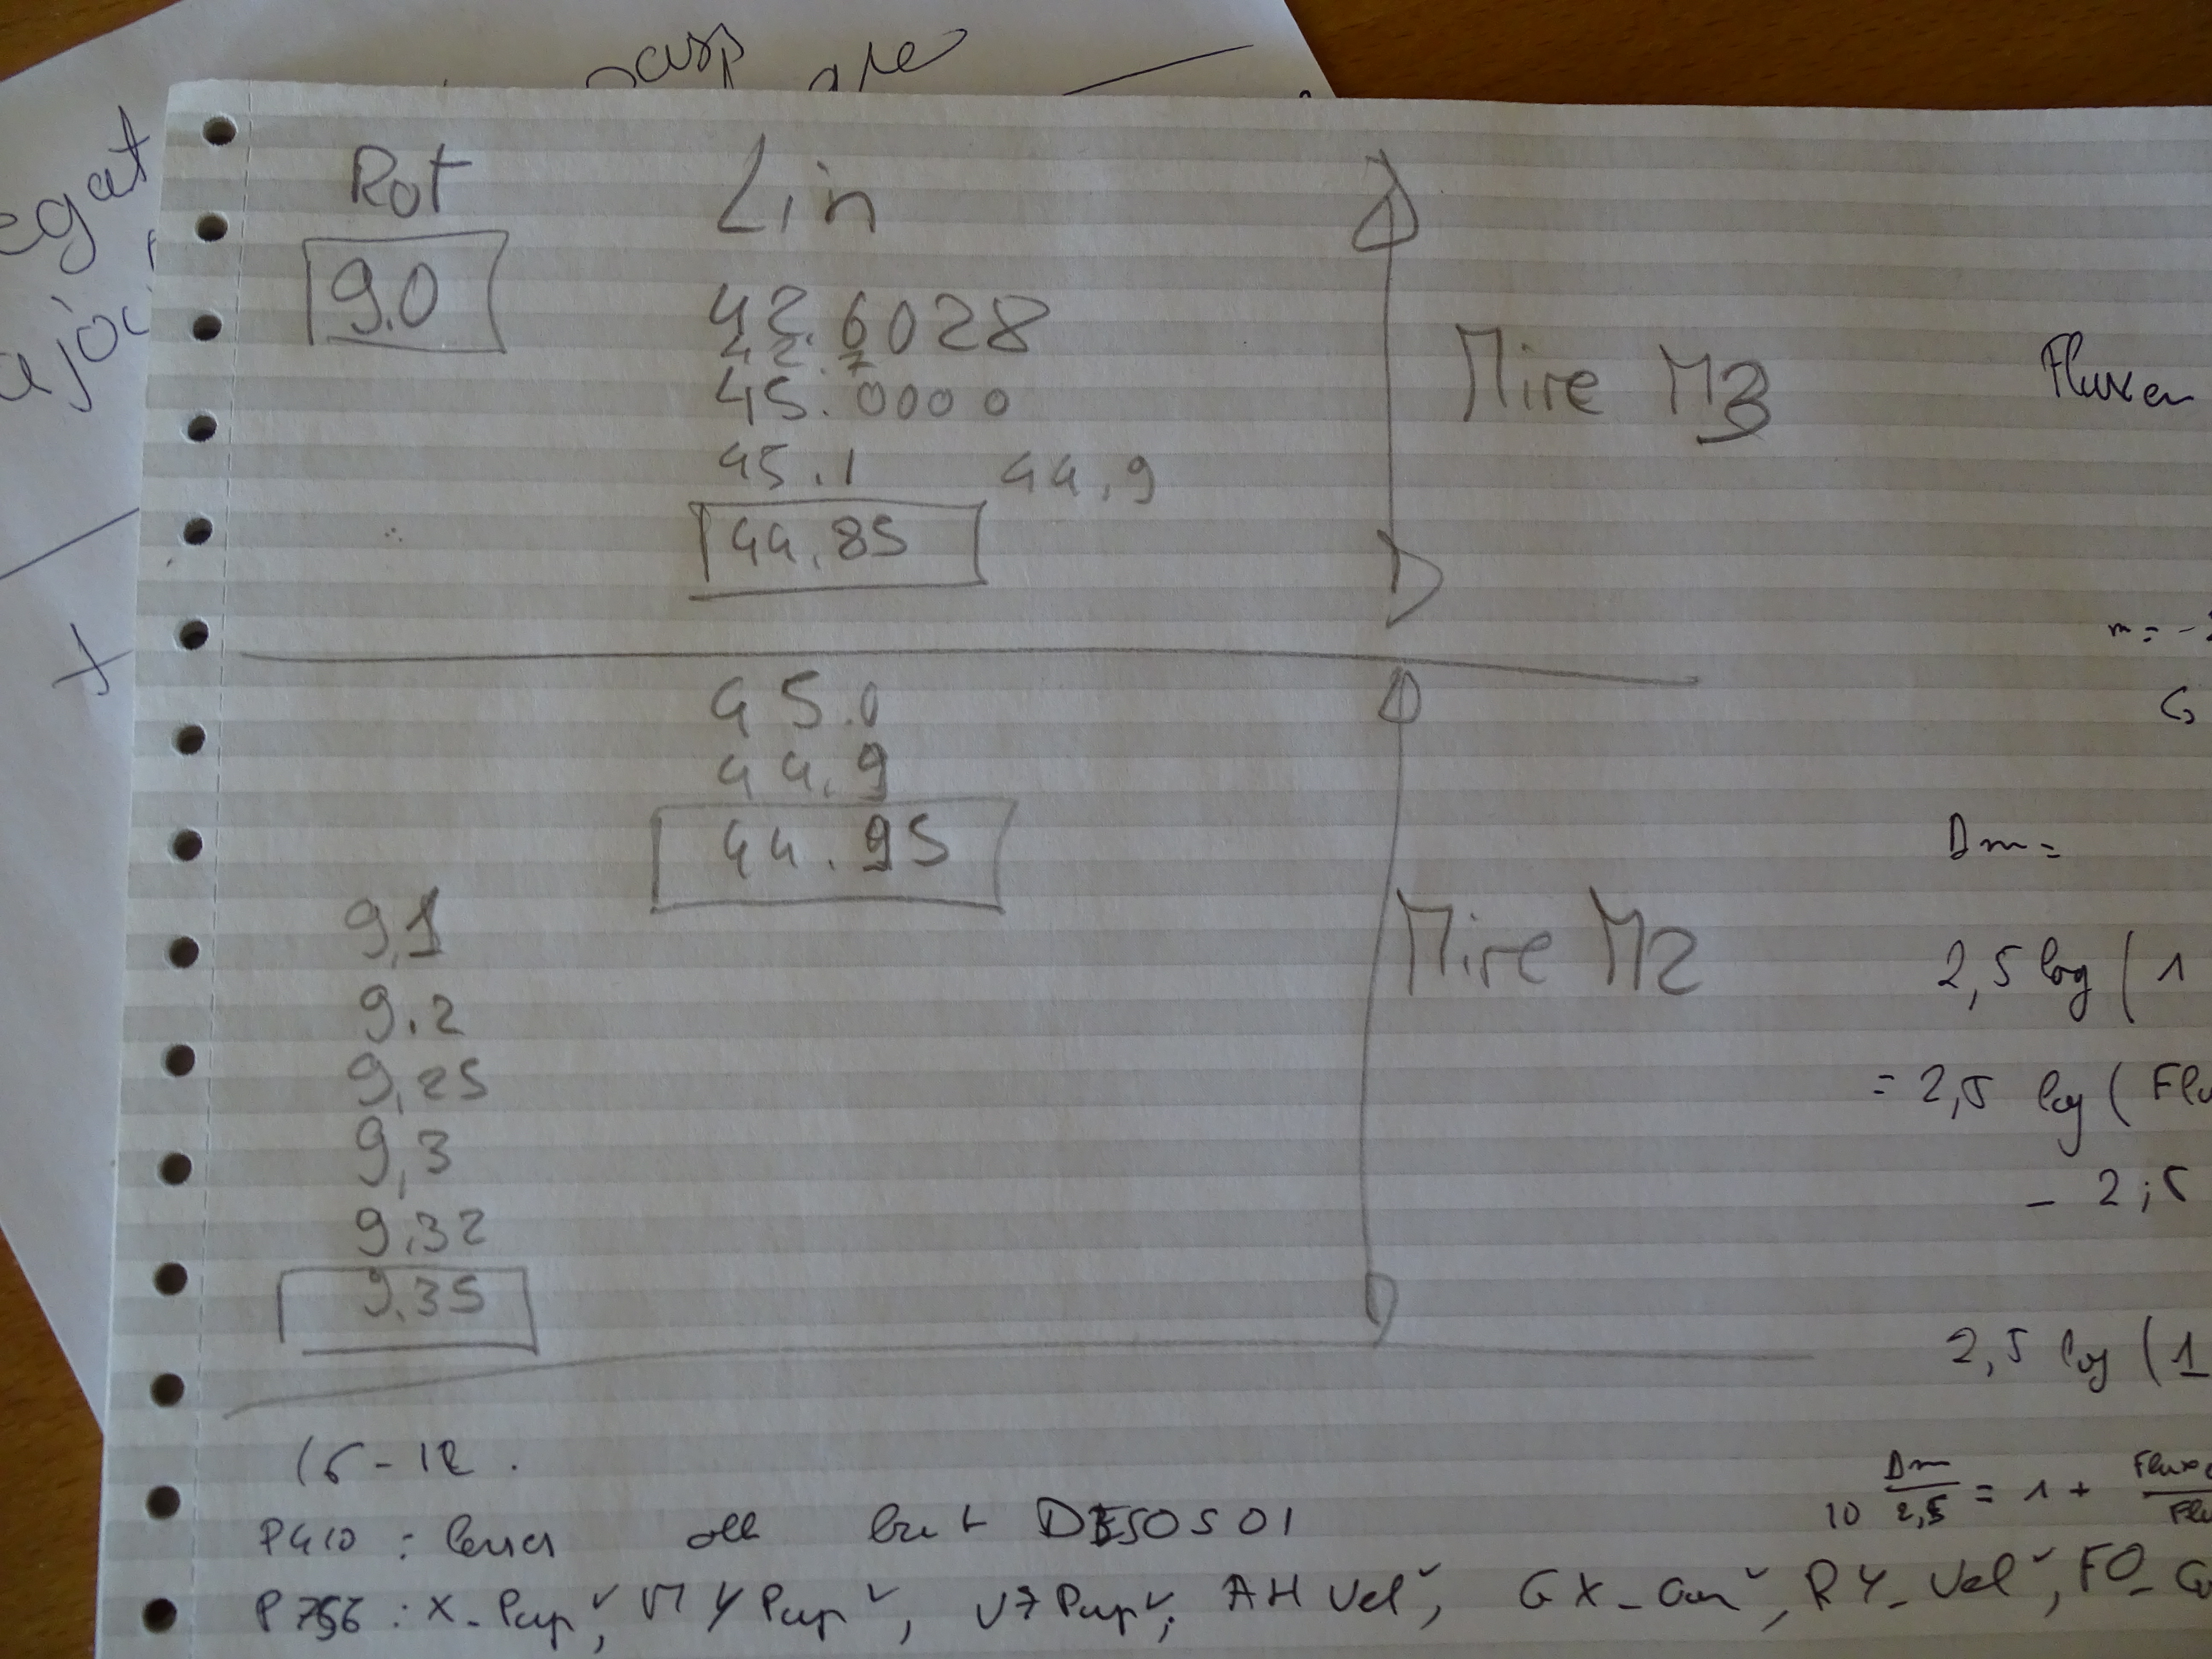 Rot Lin
9.0
42.6028
45.0000
45.1 44,9
44,85
Mire M3
Fluxen
45.0
44.9
44.95
Mire M2
9,1
9.2
9,25
9,3
9.32
9.35
m = -
Dm =
2,5 log ( 1
= 2,5 log ( Flu
- 2,5
2,5 log ( 1
10 Dm/2,5 = 1 +
P410 :
P756 : X_Pup, VY Pup, VZ Pup, AH Vel, GX_Car, RY_Vel, FO_
egat
ajou